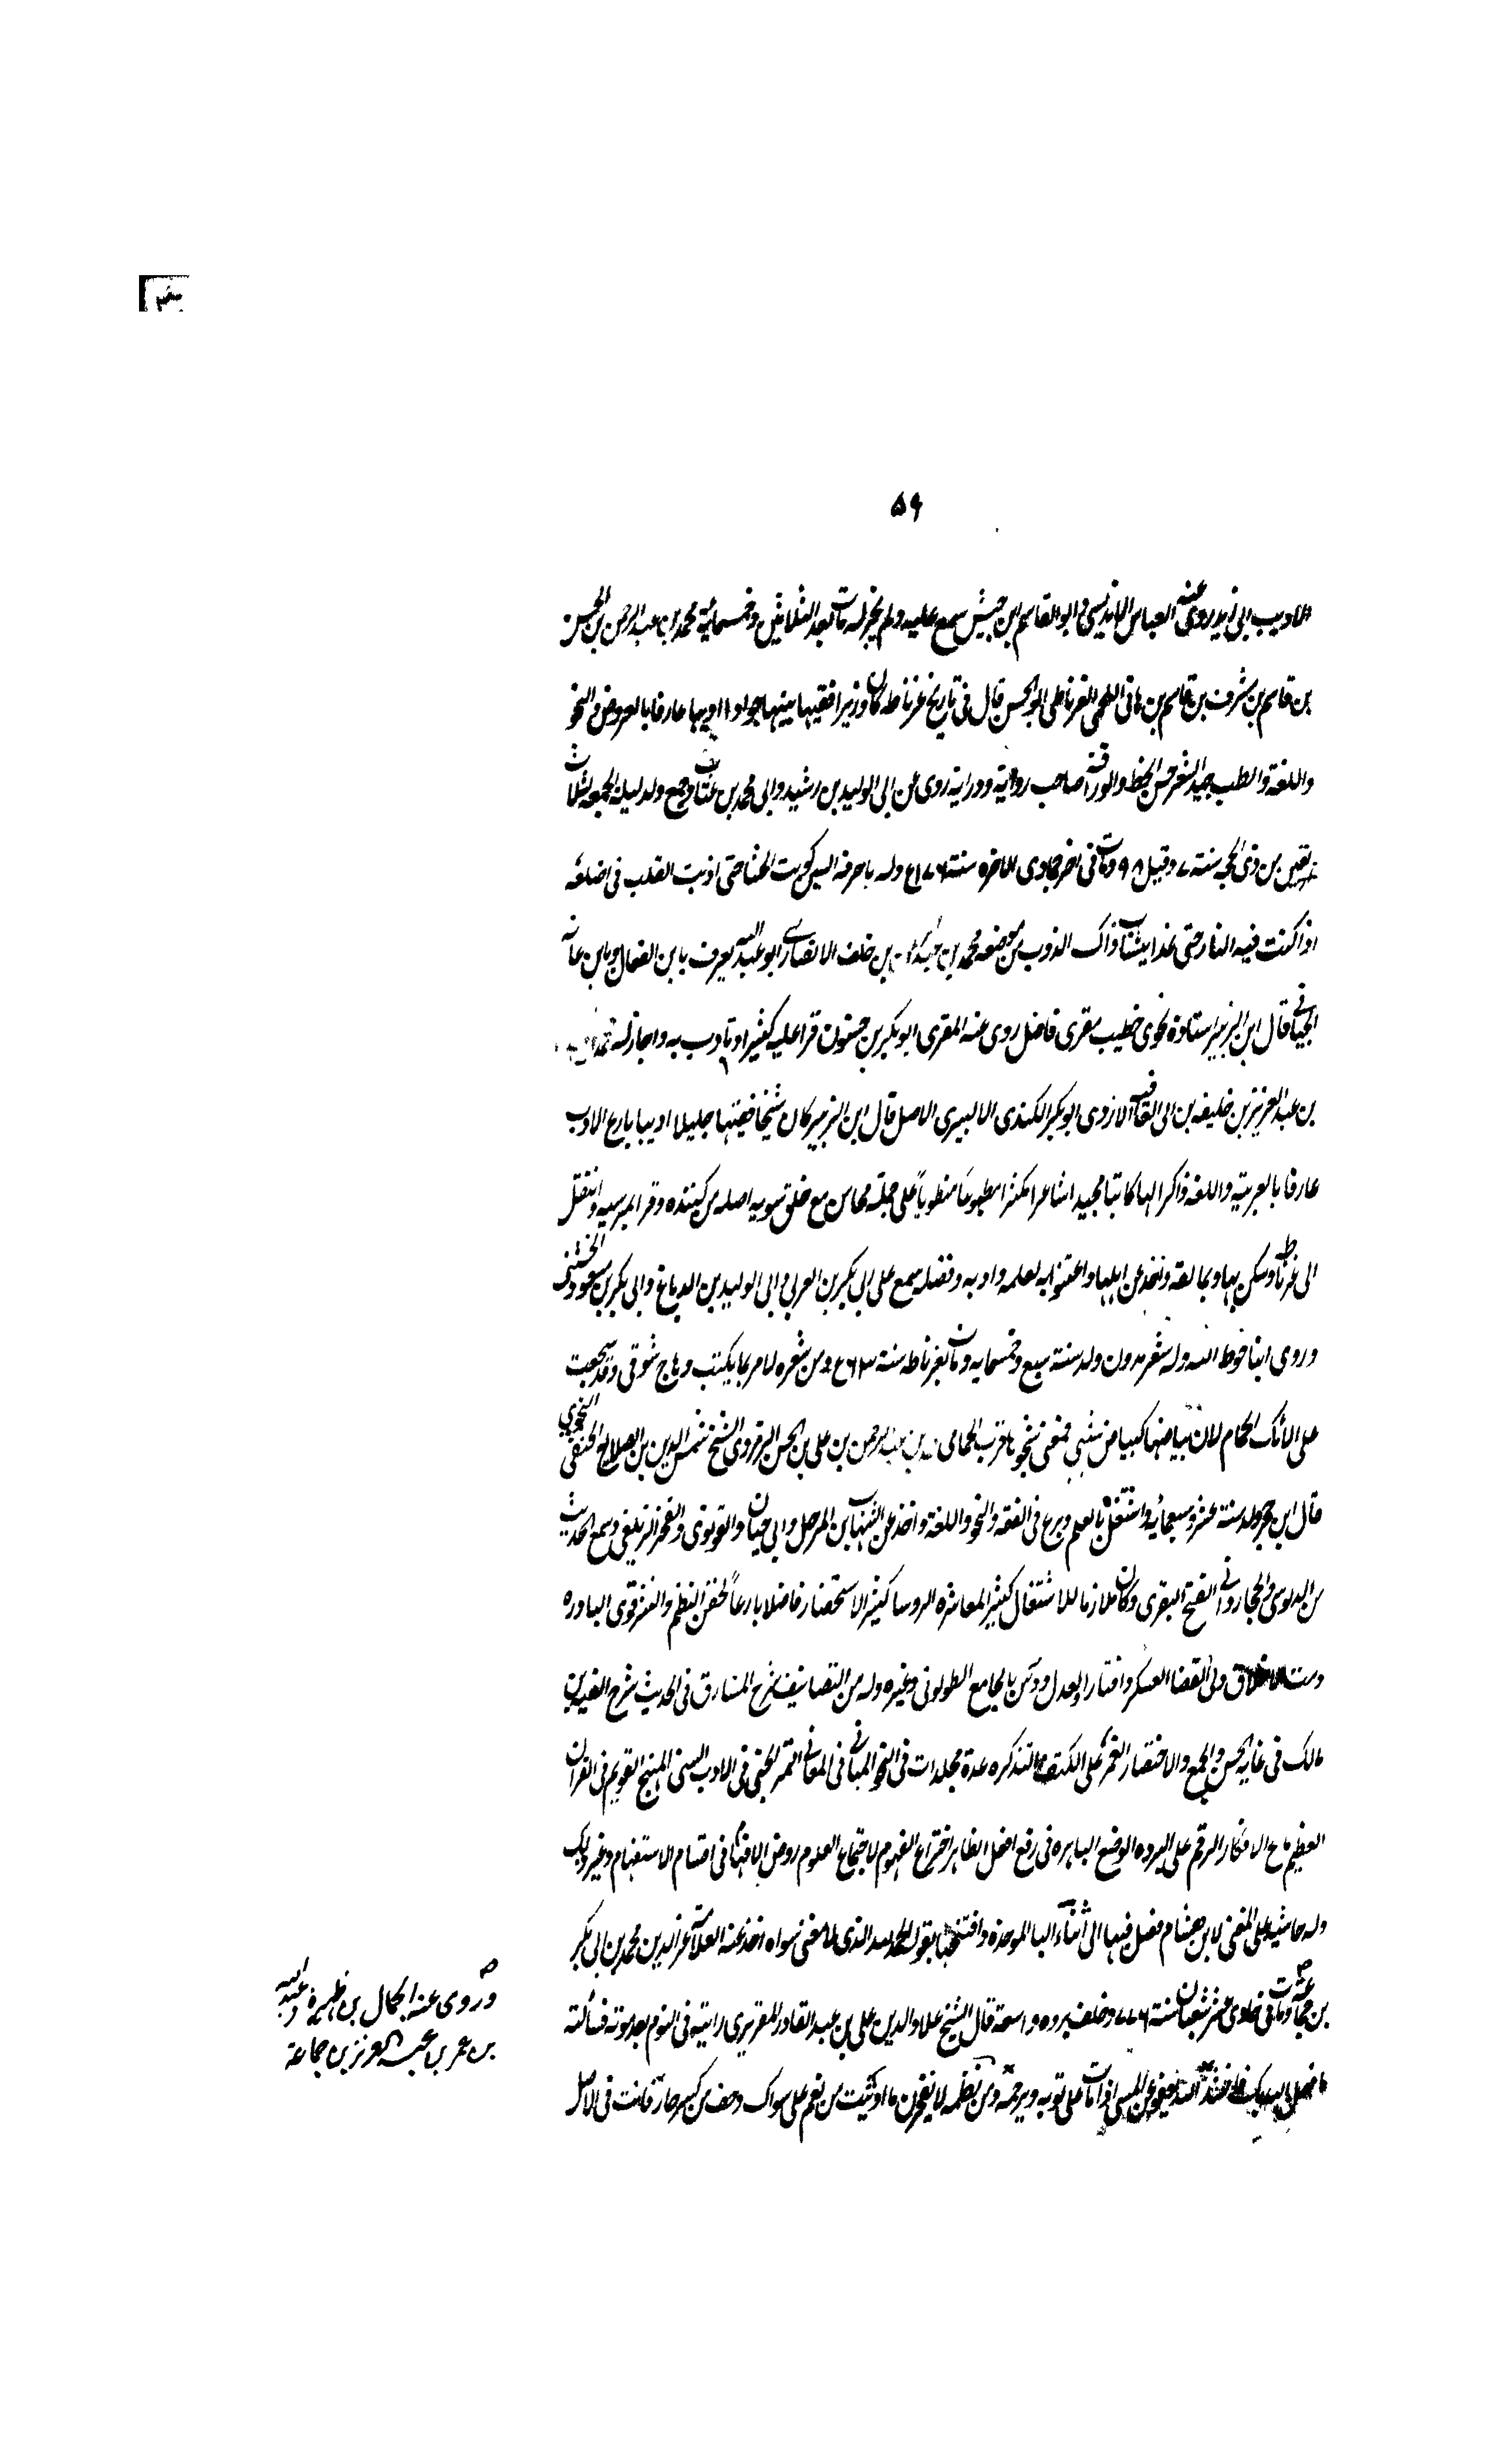 ۵۶
الاديب ابى زيد روى عنه العباس الاندلسى و ابو القاسم ابن حبيش سمع عليه ولم يجز له مات بعد الثلاثين و خمسمائة محمد بن عبد الرحمن بن الحسن
بن قاسم بن مشرف بن قاسم بن هانى اللخمى الغرناطى ابو الحسن قال فى تاريخ غرناطه كان وزيرا فقيها نبيها جوادا اديبا عارفا بالعروض والنحو
واللغة والطب جيد الشعر حسن الخط والوراقة صاحب رواية ودراية روى عن ابى الوليد بن رشيد وابى محمد بن عتاب وجمع ولد ليلة الجمعة لثلاث
بقين من ذى الحجه سنة وقيل ۹۸ ومات فى اخر جمادى الاخره سنة وله يا حرفة البين كويت الحشا حتى اذبت القلب فى اضلعه
اذ اكنت فيه النار حتى غدا ينساب ذاك الذوب من موضعه محمد بن خلف الانصارى ابو عبد الله يعرف بابن الفعال وبابن عانه
الجيانى قال ابن الزبير استاذ نحوى خطيب مقرى فاضل روى عنه المقرى ابو بكر بن حسنون قرا عليه كثيرا وتادب به واجاز له
بن عبد العزيز بن خليفه بن ابى العافيه الازدى ابو بكر الكندى الالبيرى الاصل قال ابن الزبير كان شيخا فقيها جليلا اديبا بارع الادب
عارفا بالعربية واللغة ذاكرا لها كاتبا مجيدا شاعرا مكثرا مطبوعا منطويا على جملة محاسن مع خلق سويه اصله من كنده وقرا بمرسيه وانتقل
الى غرناطه وسكن بها وبمالقه واخذ عن اهلها واعتنوا به لعلمه وادبه وفضله سمع على ابى بكر بن العربى وابى الوليد بن الدباغ وابى بكر بن مسعود الخشنى
وروى ابنا حوط الله وله شعر مدون ولد سنة سبع وخمسمايه ومات بغرناطه سنة ومن شعره لامر ما بكيت وهاج شوقى وقد سجعت
على الأيك الحمام لان بياضها كبياض شيبى فمعنى شجوها قرب الحمام محمد بن عبد الرحمن بن على بن الحسن الزمردى الشيخ شمس الدين بن الصايغ الحنفى النحوى
قال ابن حجر ولد سنة عشر وسبعمائة واشتغل بالعلم وبرع فى الفقه والنحو واللغة واخذ عن الشهاب بن المرحل وابى حيان والقونوى والفخر الزيلعى وسمع الحديث
من الدبوسى والحجار وابى الفتح اليعمرى وكان ملازما للاشتغال كثير المعاشره للروسا كثير الاستحضار فاضلا بارعا حسن النظم والنثر قوى البادره
دمث الاخلاق ولى قضا العسكر وافتا دار العدل ودرس بالجامع الطولونى وغيره وله من التصانيف شرح المشارق فى الحديث شرح الفيه بن
مالك فى غاية الحسن والجمع والاختصار الغمز على الكنز التذكره عدة مجلدات فى النحو المبانى فى المعانى الثمر الجنى فى الادب السنى المنهج القويم فى القران
العظيم نتايج الافكار الرقم على البرده الوضع الباهر فى رفع افعل الظاهر اختراع الفهوم لاجتماع العلوم روض الافهام فى اقسام الاستفهام وغير ذلك
وله حاشيه على المغنى لابن هشام فصل فيها الى اثناء البا الموحدة وافتتحها بقوله الحمد لله الذى لا مغنى سواه اخذ عنه العلامة عز الدين محمد بن ابى بكر
بن جماعة ومات فى حادى عشر شعبان سنة ۷۷۶ وخلف ثروه واسعة قال الشيخ علاء الدين على بن عبد القادر المقريزى رايته فى النوم بعد موته فسألته
ما فعل الله بك فانشد الله يعفو عن المسى اذا مات على توبه ويرحمه ومن نظمه لا تفخرن بما اوتيت من نعم على سواك وخف من كسر جبار فانت فى الاصل
وروى عنه الجمال بن ظهيرة وعبد الله
بن عمر بن عبد العزيز بن جماعة